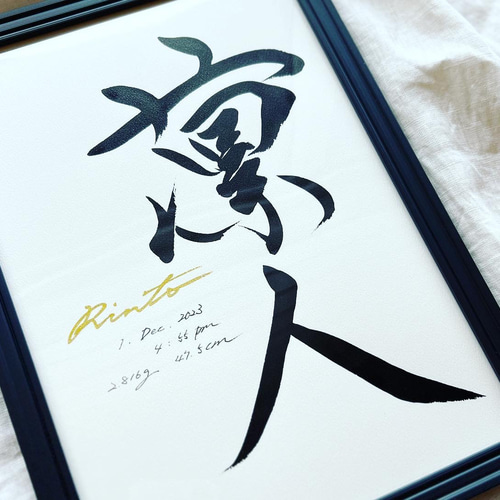 凛人
Rinto
1. Dec. 2023
4:55 pm
2816g 47.5cm